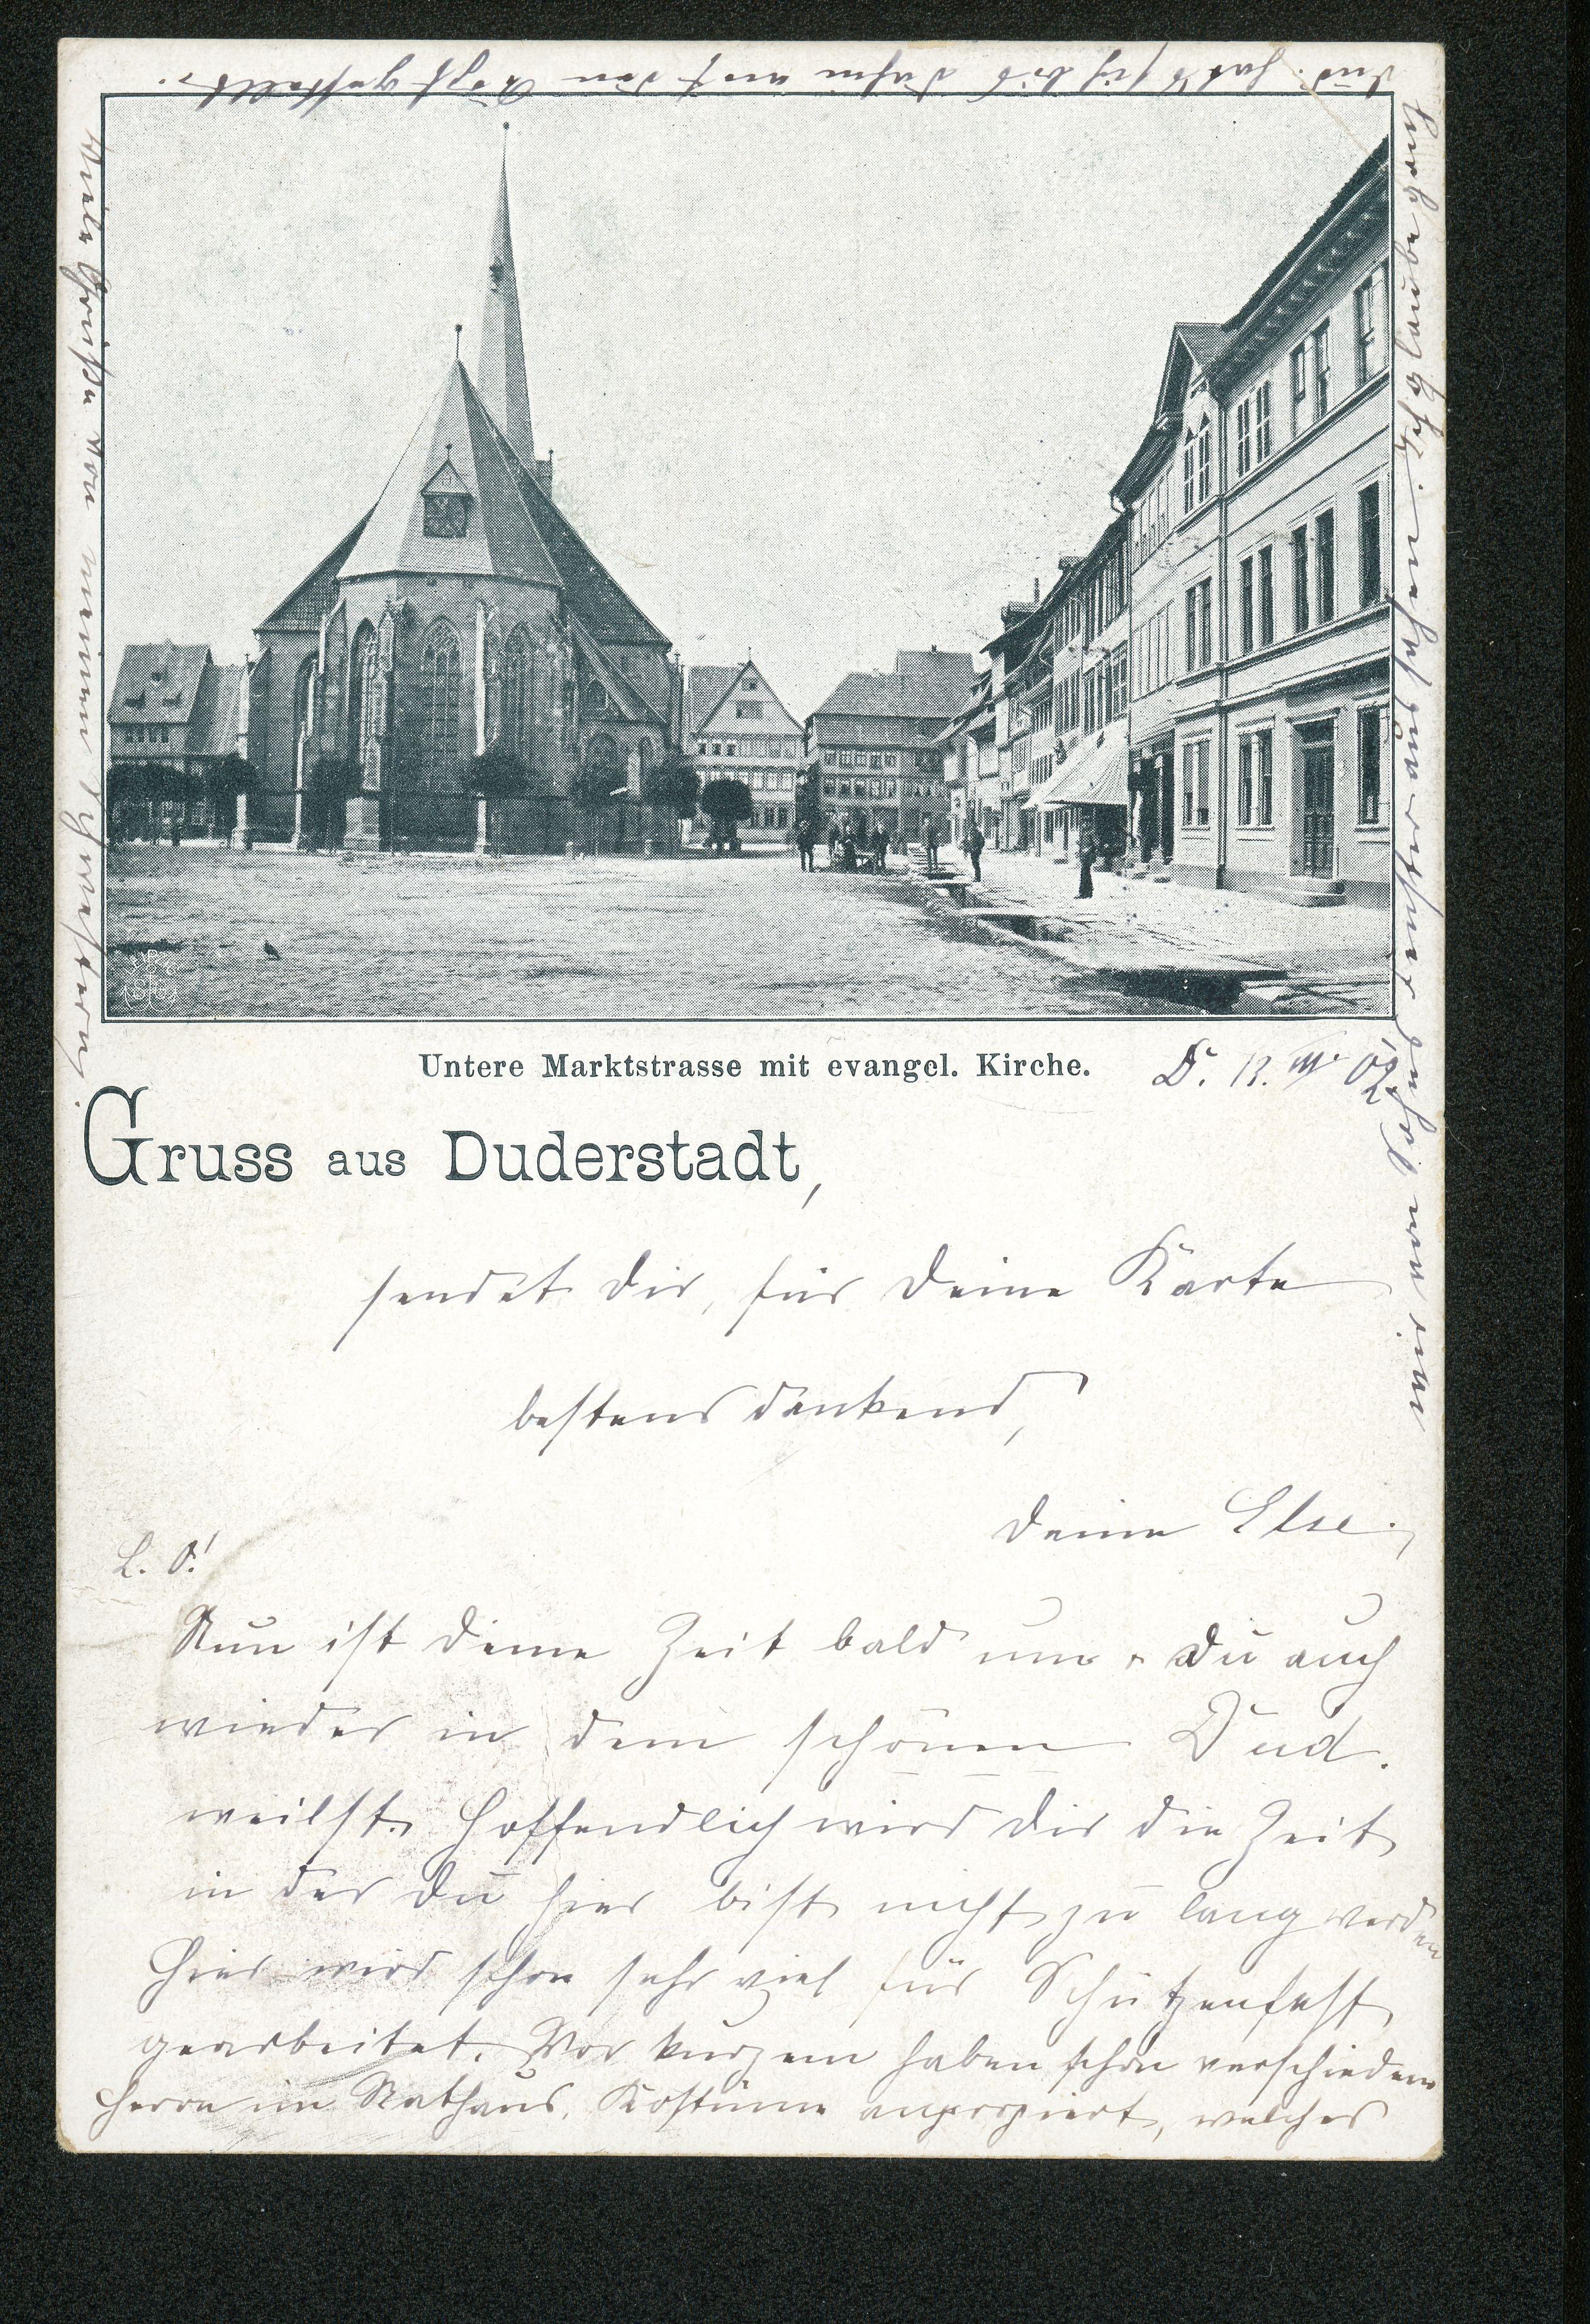 Untere Marktstrasse mit evangel. Kirche.
D. 13. III. 02.
Gruss aus Duderstadt,
sendet Dir, für Deine Karte
bestens dankend,
Deine Else.
L. O!
Nun ist Deine Zeit bald um u. Du auch
wieder in dem schönen Dud.
weilst. Hoffendlich wird Dir die Zeit
in der Du hier bist nicht zu lang werden
Hier wird schon sehr viel für Schützenfest
gearbeitet. Vor kurzem haben schon verschiedene
Herrn im Rathaus, Kostüme anprobiert, welches
wir von
Dud. hat sich bis dahin auf den Kopf gestellt.
Viele Grüße von meinen Schwestern